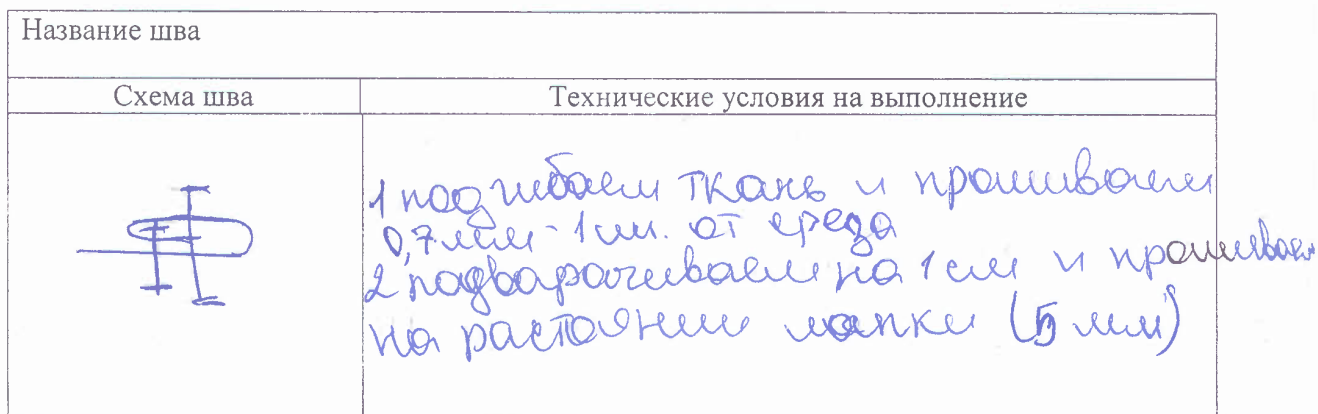 Название шва
Схема шва
Технические условия на выполнение
1 подгибаем ткань и прошиваем
0,7мм-1мм. от среза
2 подварачиваем на 1 см и прошиваем
на растоянии лапки (5 мм)